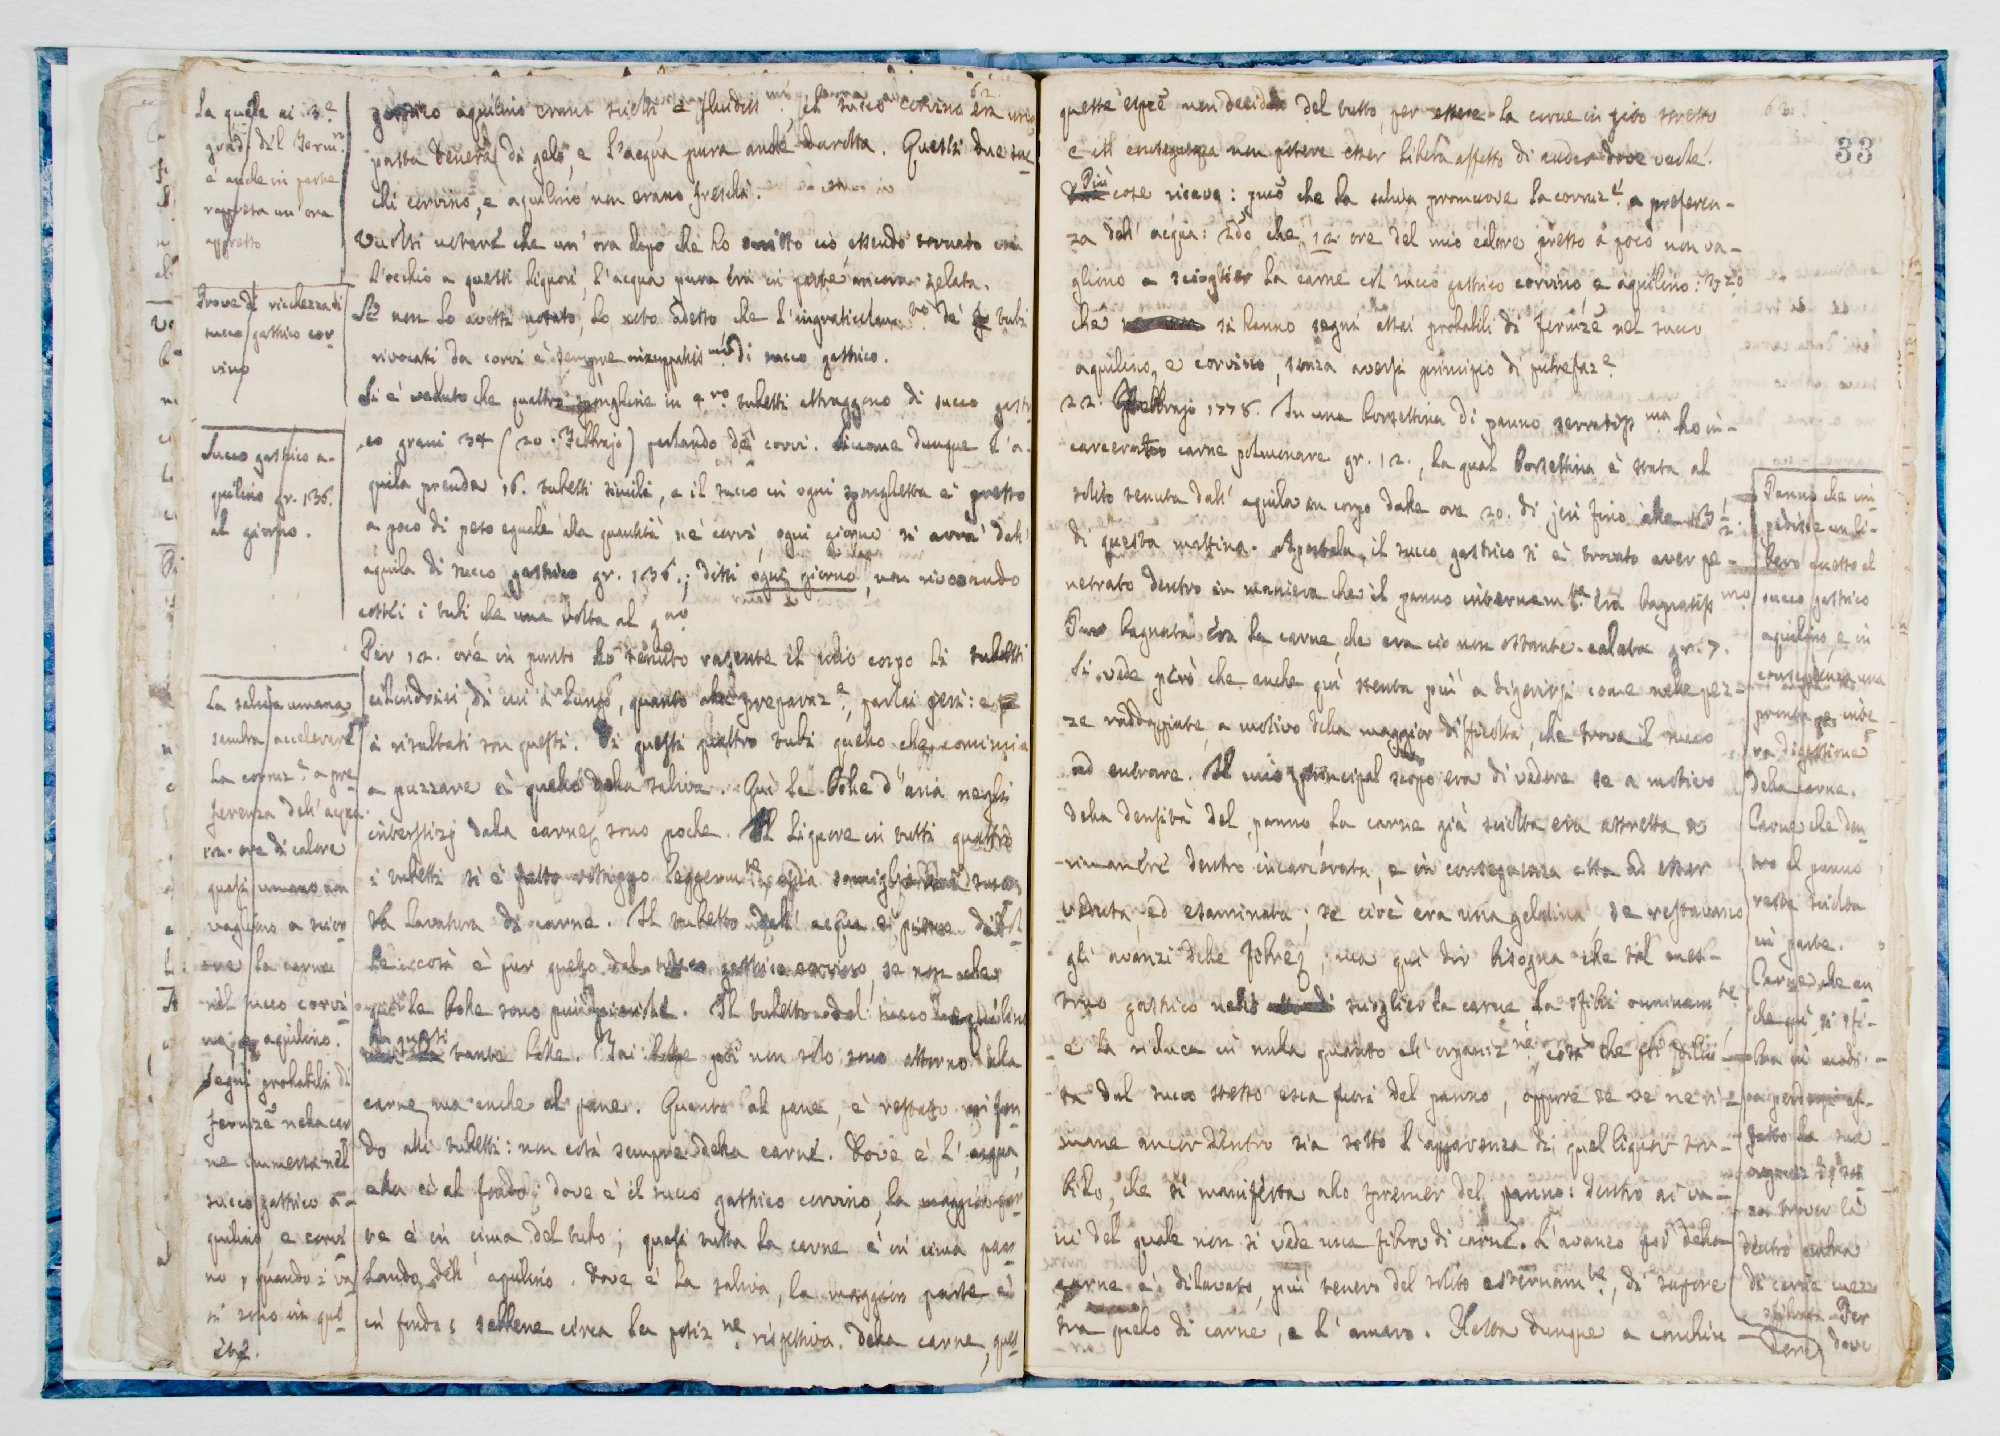 62.
La quale ai 3.e
gradi del Term.ro
è anche in parte
rappresa un' ora
appresso
Prove di ricchezza di
succo gastrico cor-
vino
Succo gastrico a-
quilino gr. 136.
al giorno.
La saliva umana
sembra accelerare
la corruz.e a pre-
ferenza dell' acqua
12. ore di calore
quasi umano non
vagliono a scior-
re la carne
nel succo corvi-
no, e aquilino.
Segni probabili di
ferm.ze nella car
ne immersa nel
succo gastrico a-
quilino, e corvi
no, quando i va
si sono in qui-
ete.
gastrico aquilino erano sciolti e fluidiss.mi, il succo corvino era una
pasta tenera di gelo, e l'acqua pura anche duretta. Questi due suc-
chi corvino, e aquilino non erano freschi.
Vuolsi notare che un' ora dopo che ho scritto ciò essendo tornato con
l'occhio a questi liquori, l'acqua pura era in parte ancora gelata.
Se non lo avessi notato, lo noto adesso che l'ingraticolam.to de' tubi
rivocati da corvi è sempre inzuppatiss.mo di succo gastrico.
Si è veduto che quattro spugnette in 4.ro tubetti attraggono di succo gastri
co grani 34 (20. Febbrajo) parlando de' corvi. Siccome dunque l'a-
quila prende 16. tubetti simili, e il succo in ogni spugnetta è presso
a poco di peso eguale alla quantità ne' corvi, ogni giorno si avrà dall'
aquila di succo gastrico gr. 136.; dissi ogni giorno, non rivocando
costei i tubi che una volta al g.no
Per 12. ore in punto ho tenuto rasente il mio corpo li tubetti
cilindrici, di cui a lungo, quanto alla preparaz.e, parlai jeri: e
i risultati son questi. Di questi quattro tubi quello che comincia
a puzzare è quello della saliva. Qui le bolle d'aria negli
interstizj dalla carne sono poche. Il liquore in tutti quattro
i tubetti si è fatto rossiccio leggerm.te
la lavatura di carne. Il tubetto dell' acqua è pieno di bol-
le: così è pur quello del succo gastrico corvino, se non che
le bolle sono più piccole. Il tubetto del succo aquilino
ha questi tante bolle. Tai bolle poi non solo sono attorno alla
carne, ma anche al pane. Quanto al pane, è restato nei fon
do alli tubetti: non così sempre della carne. Dove è l'acqua,
ella è al fondo; dove è il succo gastrico corvino, la maggior par-
te è in cima del tubo; quasi tutta la carne è in cima par
lando dell' aquilino. Dove è la saliva, la maggior parte è
in fondo; sebbene circa la posiz.ne rispettiva della carne, ques-
63.
33
queste esp.e non decidono del tutto, per essere la carne in sito stretto
e in conseguenza non potere esser libera affatto di andar dove vuole.
Più cose ricavo: p.mo che la saliva promuove la corruz.e a preferen-
za dell' acqua: 2do che 12 ore del mio calore presso a poco non va-
gliono a sciogliere la carne col succo gastrico corvino e aquilino: 3zo
che si hanno segni assai probabili di ferm.ze nel succo
aquilino, e corvino, senza aversi principio di putrefaz.e
22. Febbrajo 1778. In una borsettina di panno serratiss.ma ho in-
carcerato carne polmonare gr. 12., la qual borsettina è stata al
solito tenuta dall' aquila in corpo dalle ore 20. di jeri fino alle 13 1/2.
di questa mattina. Apertala, il succo gastrico si è trovato aver pe-
netrato dentro in maniera che il panno internam.te era bagnatiss.mo
Pur bagnata era la carne, che era ciò non ostante calata gr. 7.
Si vede però che anche qui stenta più a digerirsi come nelle pez-
ze raddoppiate, a motivo della maggior difficoltà, che trova il succo
ad entrare. Il mio principal scopo era di vedere se a motivo
della densità del panno la carne già sciolta era astretta a
rimanere dentro incarcerata, e in conseguenza atta ad esser
veduta, ed esaminata; se cioè era una gelatina, se restavano
gli avanzi delle fibre; ma qui dir bisogna che tal mes-
truo gastrico nello scioglier la carne la sfibri omninam.te
e la riduca in nulla quanto all' organiz.ne, così che poi
ta dal succo stesso esca fuori del panno, oppure se ve ne ri-
mane ancor dentro sia sotto l'apparenza di quel liquor tor-
bido, che si manifesta allo spremer del panno: dentro ai va-
ni del quale non si vede una fibra di carne. L'avanzo poi della
carne è dilavato, più tenero del solito esternam.te, di sapore
tra quello di carne, e l'amaro. Resta dunque a conchiu-
dere
Panno che im-
pedisce un li-
bero ingresso al
succo gastrico
aquilino, e in
conseguenza una
pronta, e inte-
ra digestione
della carne.
Carne che den-
tro al panno
resta sciolta
in parte.
Carne che an-
che qui si sfi-
bra in modo
da perdere af-
fatto la sua
organiz.ne
trovar là
dentro
di carne mezzo
sfibrata. Per
dove